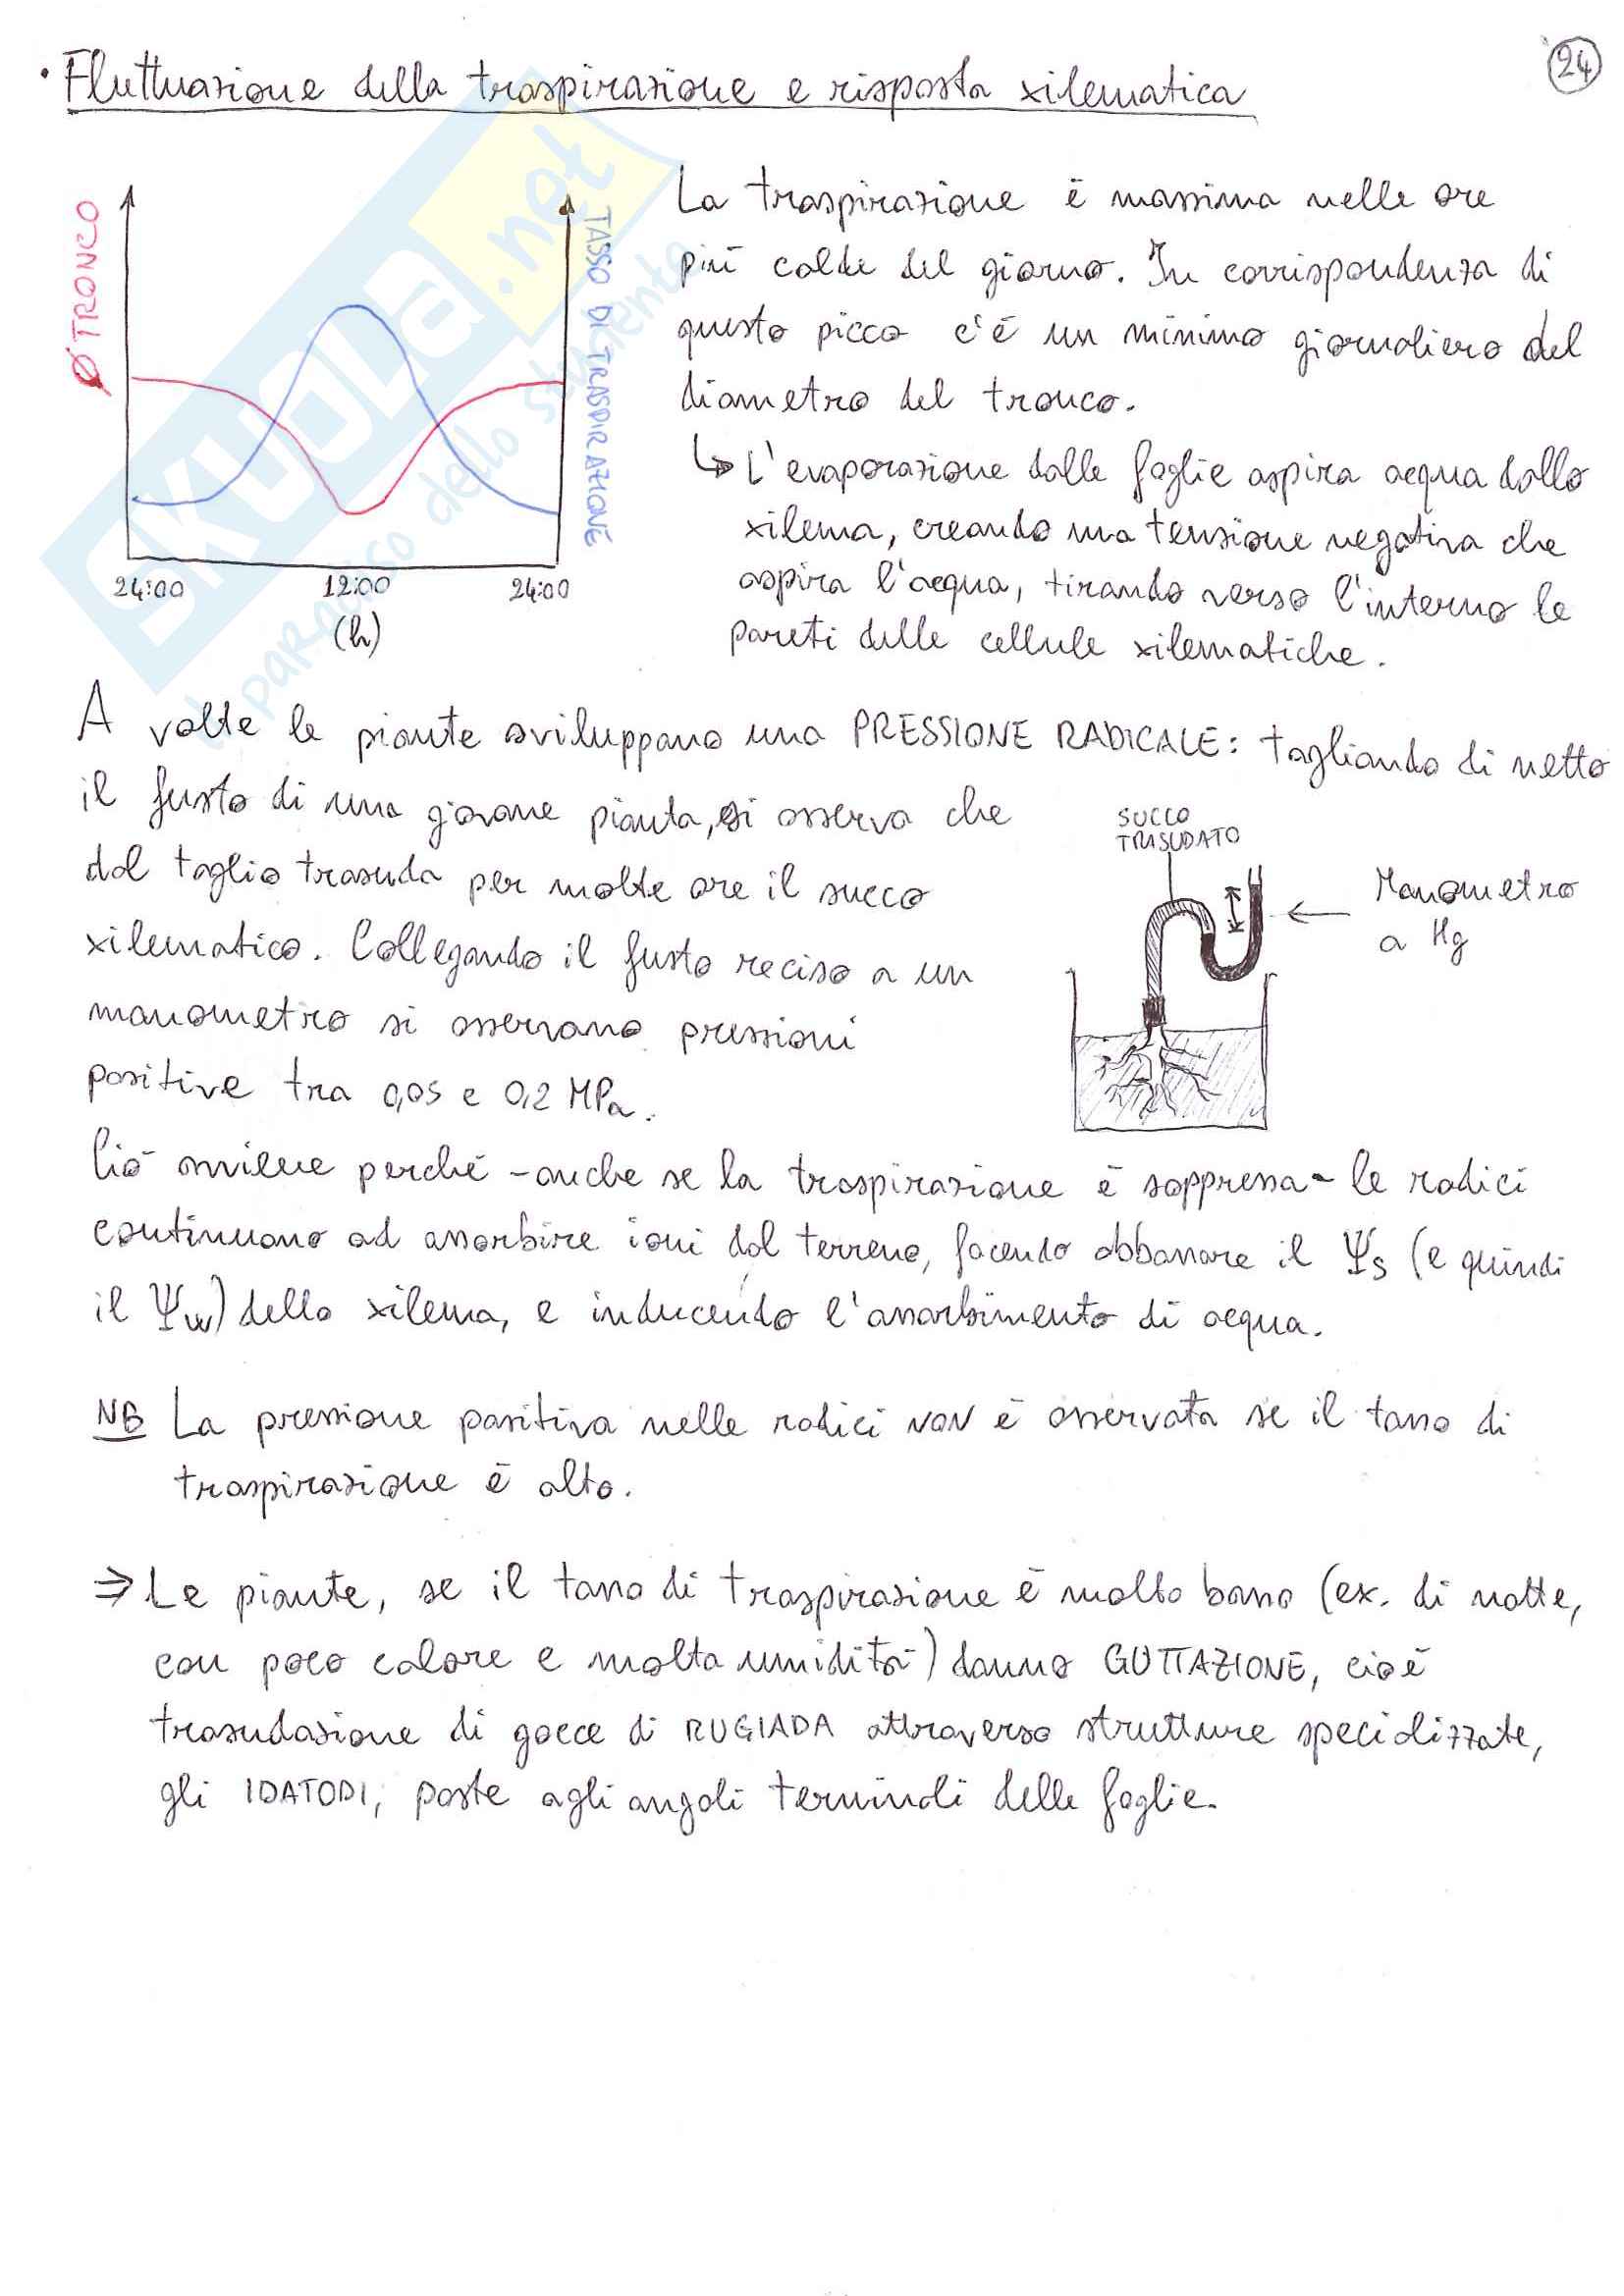 24
• Fluttuazione della traspirazione e risposta xilematica
Ø TRONCO
TASSO DI TRASPIRAZIONE
24:00 12:00 24:00
(h)
La traspirazione è massima nelle ore
più calde del giorno. In corrispondenza di
questo picco c'è un minimo giornaliero del
diametro del tronco.
↳ L'evaporazione dalle foglie aspira acqua dallo
xilema, creando una tensione negativa che
aspira l'acqua, tirando verso l'interno le
pareti delle cellule xilematiche.
A volte le piante sviluppano una PRESSIONE RADICALE: tagliando di netto
il fusto di una giovane pianta, si osserva che
dal taglio trasuda per molte ore il succo
xilematico. Collegando il fusto reciso a un
manometro si osservano pressioni
positive tra 0,05 e 0,2 MPa.
SUCCO
TRASUDATO
Manometro
a Hg
Ciò avviene perché - anche se la traspirazione è soppressa - le radici
continuano ad assorbire ioni dal terreno, facendo abbassare il Ψs (e quindi
il Ψw) dello xilema, e inducendo l'assorbimento di acqua.
NB La pressione positiva nelle radici NON è osservata se il tasso di
traspirazione è alto.
⇒ Le piante, se il tasso di traspirazione è molto basso (ex. di notte,
con poco calore e molta umidità) danno GUTTAZIONE, cioè
trasudazione di gocce di RUGIADA attraverso strutture specializzate,
gli IDATODI, poste agli angoli terminali delle foglie.
SKUOLA.net
il paradiso dello studente